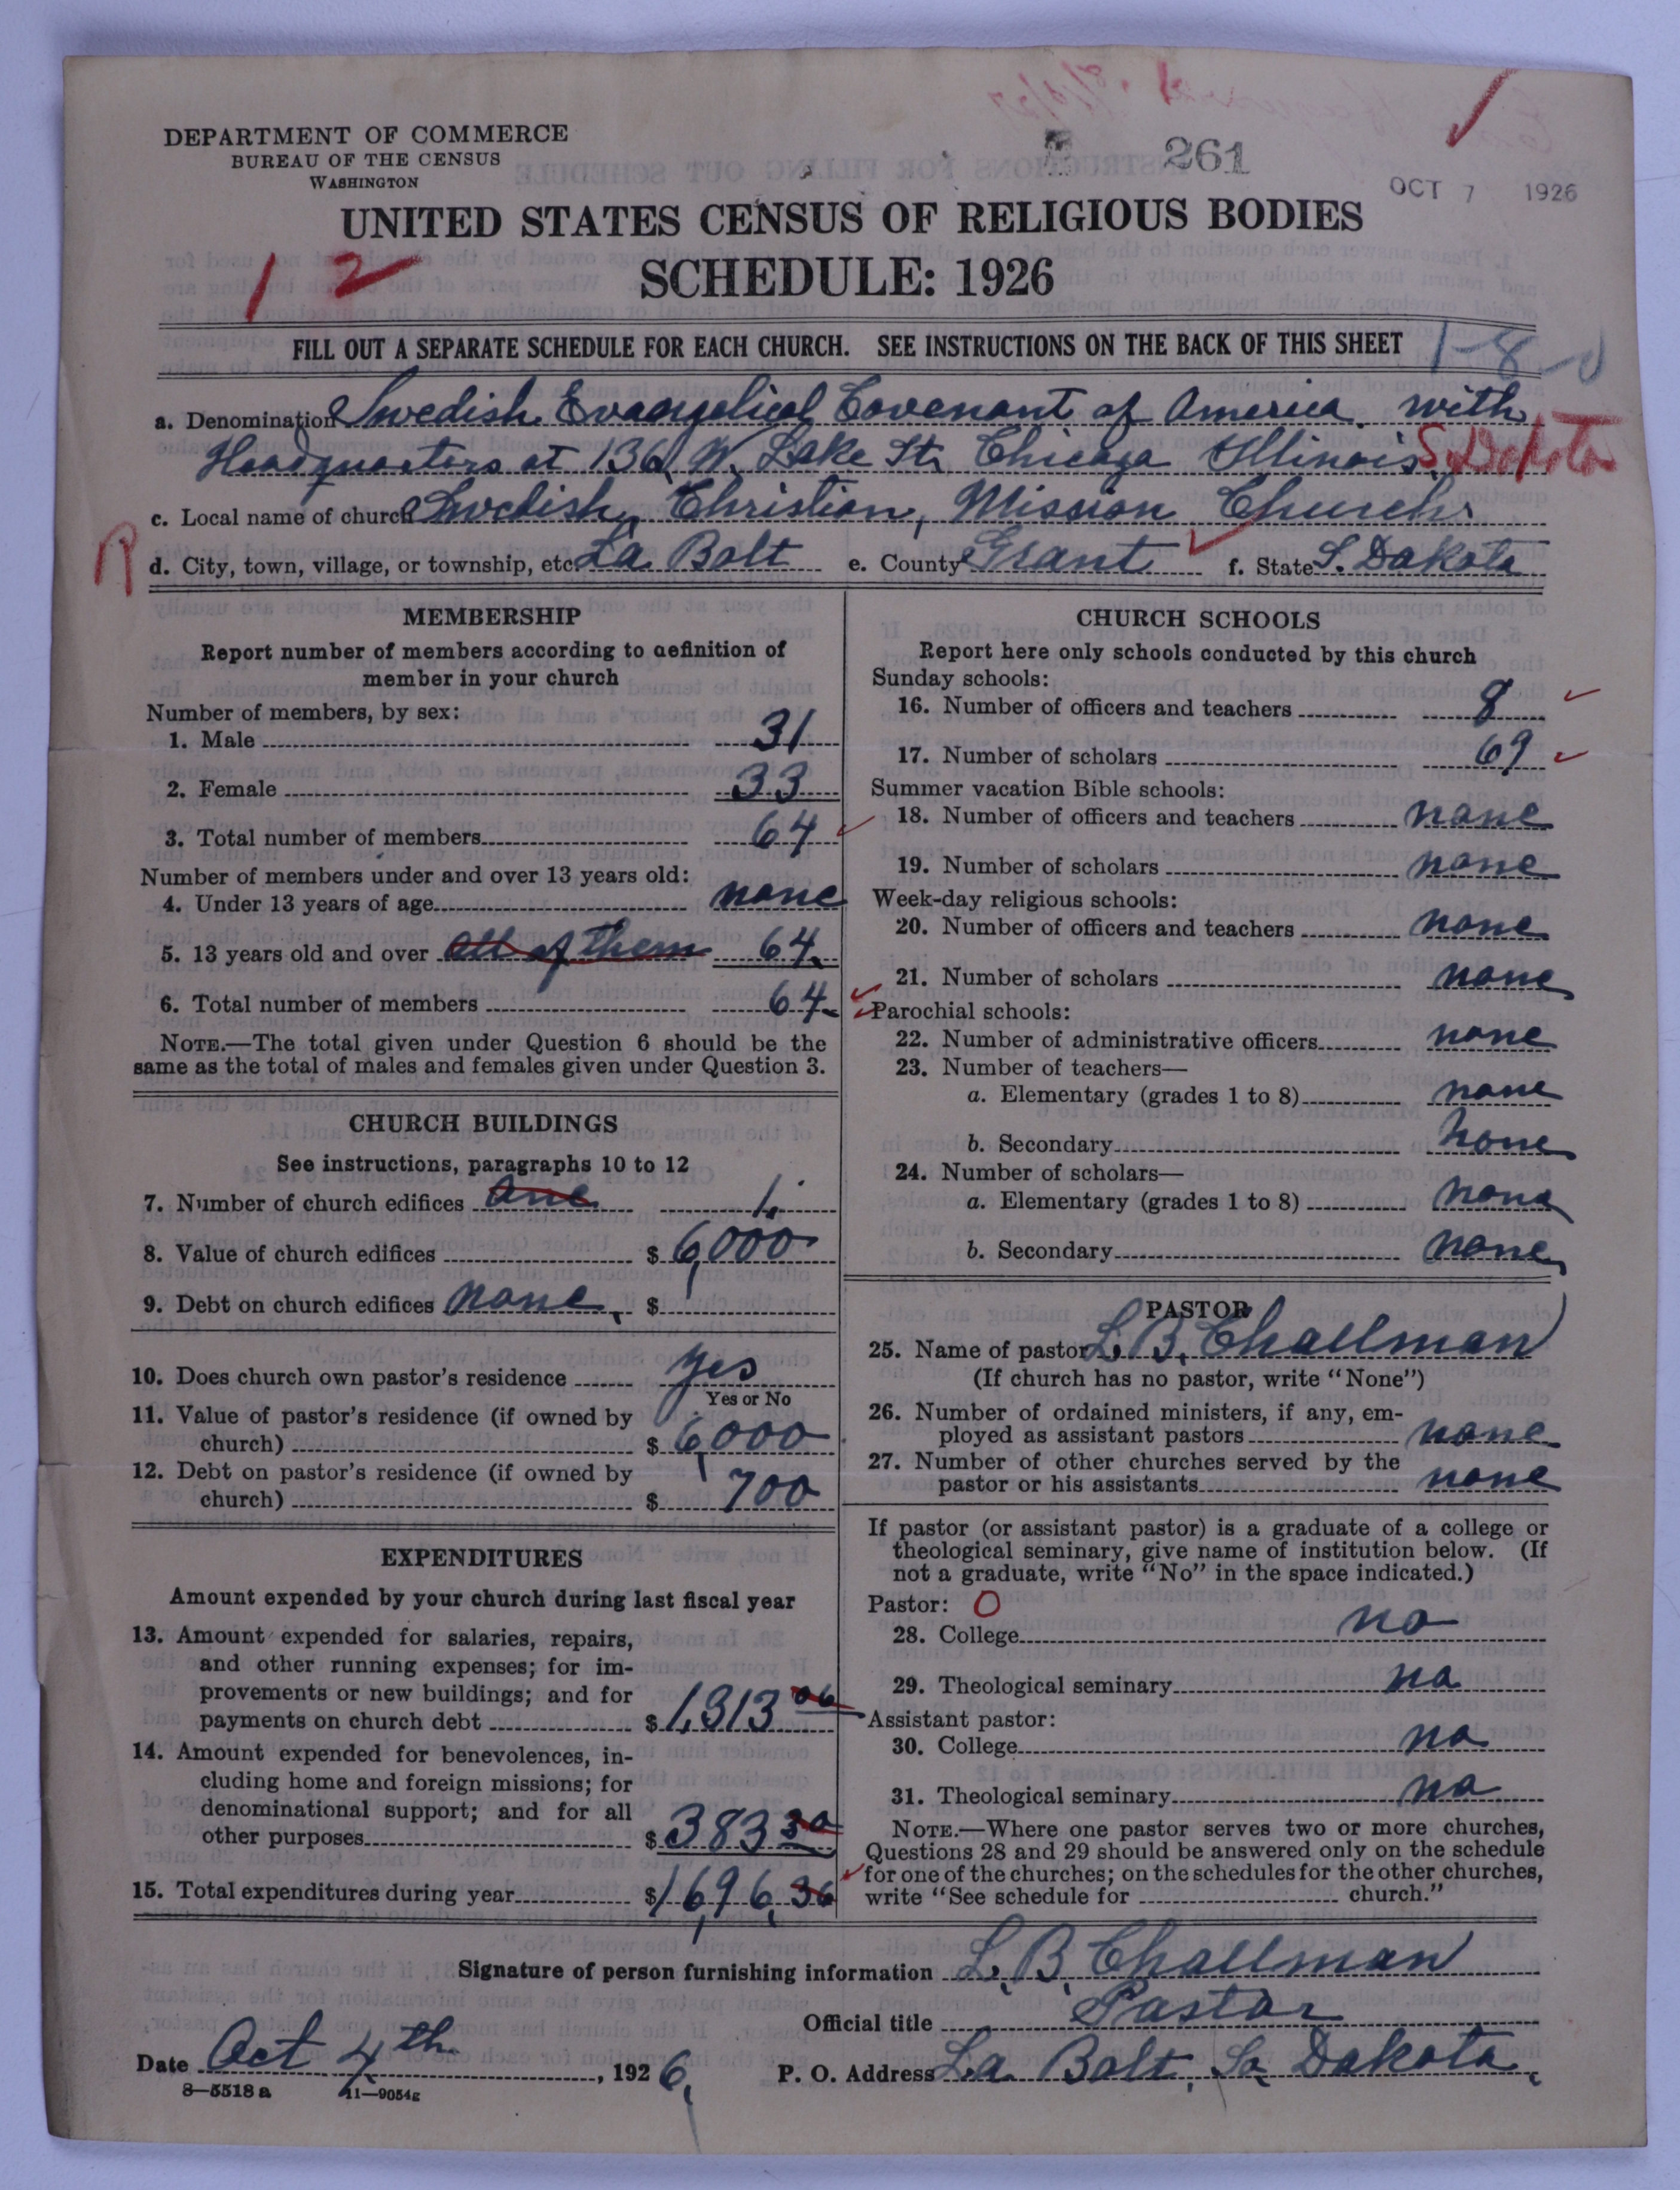 DEPARTMENT OF COMMERCE
BUREAU OF THE CENSUS
WASHINGTON
261
OCT 7 1926
UNITED STATES CENSUS OF RELIGIOUS BODIES
SCHEDULE: 1926
1 2
FILL OUT A SEPARATE SCHEDULE FOR EACH CHURCH. SEE INSTRUCTIONS ON THE BACK OF THIS SHEET
1-8-
a. Denomination Swedish Evangelical Covenant of America with
Headquarters at 136 W. Lake St. Chicago Illinois. S. Dakota
c. Local name of church Swedish, Christian, Mission Church.
d. City, town, village, or township, etc. La Bolt e. County Grant f. State S. Dakota
MEMBERSHIP
Report number of members according to definition of
member in your church
Number of members, by sex:
1. Male 31
2. Female 33
3. Total number of members 64
Number of members under and over 13 years old:
4. Under 13 years of age none
5. 13 years old and over all of them 64.
6. Total number of members 64.
NOTE.—The total given under Question 6 should be the
same as the total of males and females given under Question 3.
CHURCH BUILDINGS
See instructions, paragraphs 10 to 12
7. Number of church edifices one 1.
8. Value of church edifices $ 6,000
9. Debt on church edifices none, $
10. Does church own pastor's residence yes
Yes or No
11. Value of pastor's residence (if owned by
church) $ 6,000
12. Debt on pastor's residence (if owned by
church) $ 700
EXPENDITURES
Amount expended by your church during last fiscal year
13. Amount expended for salaries, repairs,
and other running expenses; for im-
provements or new buildings; and for
payments on church debt $ 1,313 06
14. Amount expended for benevolences, in-
cluding home and foreign missions; for
denominational support; and for all
other purposes $ 383 30
15. Total expenditures during year $ 1,696,36
CHURCH SCHOOLS
Report here only schools conducted by this church
Sunday schools:
16. Number of officers and teachers 8
17. Number of scholars 69
Summer vacation Bible schools:
18. Number of officers and teachers none
19. Number of scholars none
Week-day religious schools:
20. Number of officers and teachers none
21. Number of scholars none
Parochial schools:
22. Number of administrative officers none
23. Number of teachers—
a. Elementary (grades 1 to 8) none
b. Secondary none
24. Number of scholars—
a. Elementary (grades 1 to 8) none
b. Secondary none
PASTOR
25. Name of pastor L. B. Challman
(If church has no pastor, write "None")
26. Number of ordained ministers, if any, em-
ployed as assistant pastors none
27. Number of other churches served by the
pastor or his assistants none
If pastor (or assistant pastor) is a graduate of a college or
theological seminary, give name of institution below. (If
not a graduate, write "No" in the space indicated.)
Pastor: O
28. College no
29. Theological seminary no
Assistant pastor:
30. College no
31. Theological seminary no
NOTE.—Where one pastor serves two or more churches,
Questions 28 and 29 should be answered only on the schedule
for one of the churches; on the schedules for the other churches,
write "See schedule for church."
Signature of person furnishing information L. B. Challman
Official title Pastor
Date Oct 4th, 1926, P. O. Address La Bolt, So. Dakota,
8—5518 a 11—9054g